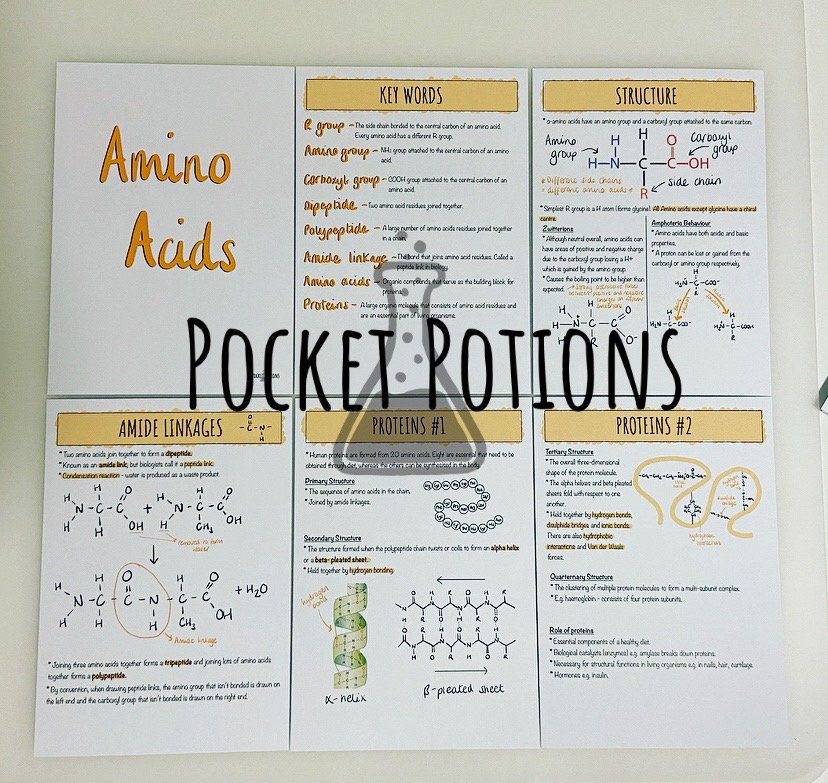 Amino
Acids
KEY WORDS
R group - The side chain bonded to the central carbon of an amino acid.
Every amino acid has a different R group.
Amino group - NH₂ group attached to the central carbon of an amino
acid.
Carboxyl group - COOH group attached to the central carbon of an
amino acid.
Dipeptide - Two amino acid residues joined together.
Polypeptide - A large number of amino acids residues joined together
in a chain.
Amide linkage - The bond that joins amino acid residues. Called a
peptide link in biology.
Amino acids - Organic compounds serve as the building block for
proteins.
Proteins - A large organic molecule that consists of amino acid residues and
are an essential part of living organisms.
STRUCTURE
* α-amino acids have an amino group and a carboxyl group attached to the same carbon.
Amino
group
H H O
H-N-C-C-OH
R
Carboxyl
group
side chain
* Different side chains
= different amino acids *
* Simplest R group is a H atom (forms glycine). All Amino Acids except glycine have a chiral
centre.
Zwitterions
* Although neutral overall, amino acids can
have areas of positive and negative
charge due to the carboxyl group losing a H+
which is gained by the amino group.
* Causes the boiling point to be higher than
expected.
Amphoteric Behaviour
* Amino acids have both acidic and basic
properties.
* A proton can be lost or gained from the
carboxyl or amino group respectively.
POCKET POTIONS
AMIDE LINKAGES
O
-C-N-
H
* Two amino acids join together to form a dipeptide.
* Known as an amide link, but biologists call it a peptide link.
* Condensation reaction - water is produced as a waste product.
removed to form
water
+ H₂O
Amide linkage
* Joining three amino acids together forms a tripeptide and joining lots of amino acids
together forms a polypeptide.
* By convention, when drawing peptide links, the amino group that isn't bonded is drawn on
the left end and the carboxyl group that isn't bonded is drawn on the right end.
PROTEINS #1
* Human proteins are formed from 20 amino acids. Eight are essential that need to be
obtained through diet, whereas the others can be synthesised in the body.
Primary Structure
* The sequence of amino acids in the chain.
* Joined by amide linkages.
Secondary Structure
* The structure formed when the polypeptide chain twists or coils to form an alpha helix
or a beta-pleated sheet.
* Held together by hydrogen bonding.
hydrogen
bonds
α-helix
β-pleated sheet
PROTEINS #2
Tertiary Structure
* The overall three-dimensional
shape of the protein molecule.
* The alpha helices and beta pleated
sheets fold with respect to one
another.
* Held together by hydrogen bonds,
disulphide bridges and ionic bonds.
There are also hydrophobic
interactions and Van der Waals
forces.
Quaternary Structure
* The clustering of multiple protein molecules to form a multi-subunit complex.
* E.g. haemoglobin - consists of four protein subunits.
Role of proteins
* Essential components of a healthy diet.
* Biological catalysts (enzymes) e.g. amylase breaks down proteins.
* Necessary for structural functions in living organisms e.g. in nails, hair, cartilage.
* Hormones e.g. insulin.